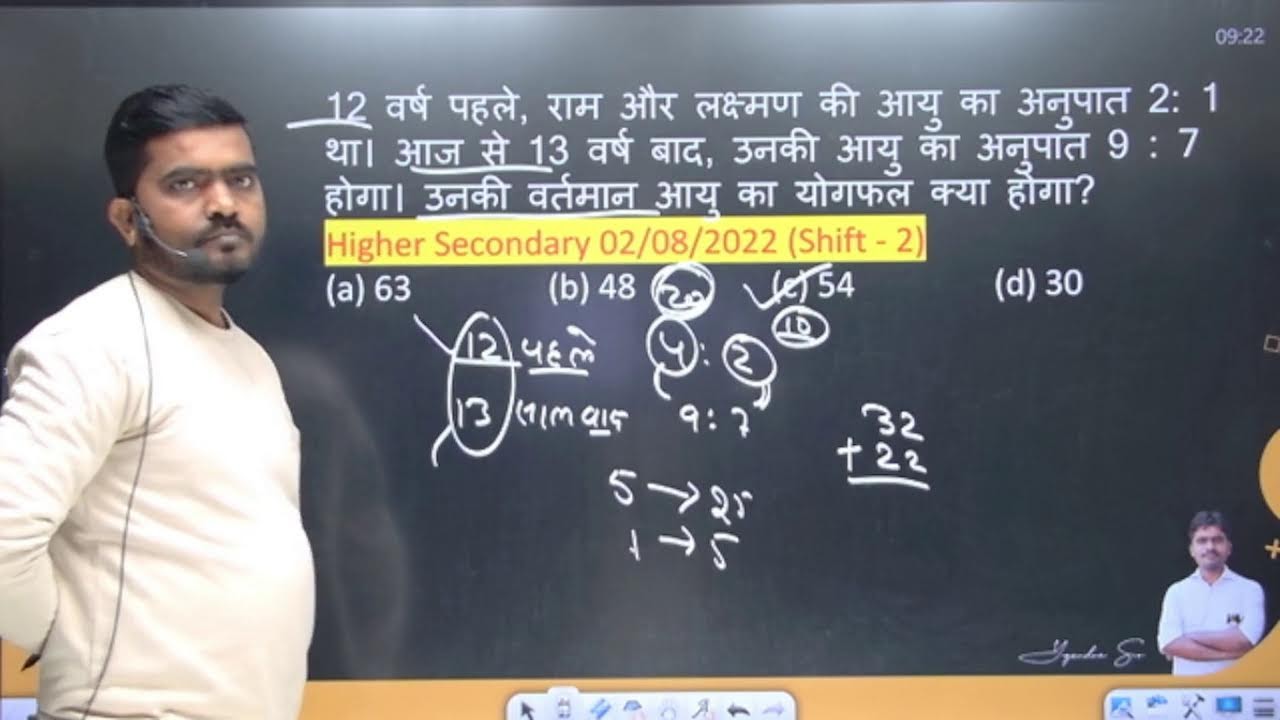 09:22
12 वर्ष पहले, राम और लक्ष्मण की आयु का अनुपात 2: 1
था। आज से 13 वर्ष बाद, उनकी आयु का अनुपात 9 : 7
होगा। उनकी वर्तमान आयु का योगफल क्या होगा?
Higher Secondary 02/08/2022 (Shift - 2)
(a) 63 (b) 48 (c) 54 (d) 30
20 10
12 पहले 4 : 2
13 साल बाद 9 : 7
32
+ 22
5 → 25
1 → 5
Yogendra Sir